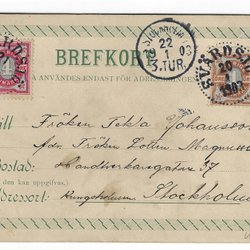 BREFKORT
SVÄRDSJÖ
20
1903
STOCKHOLM
22
1
03
3.TUR.
A ANVÄNDES ENDAST FÖR ADRESSERINGEN
Till
Fröken Tekla Johansson
Adr. Fröken Lotten Magnusson
Bostad: Handtverkaregatan 37
(den kan uppgifvas.)
Adressort: Kungsholmen Stockholm